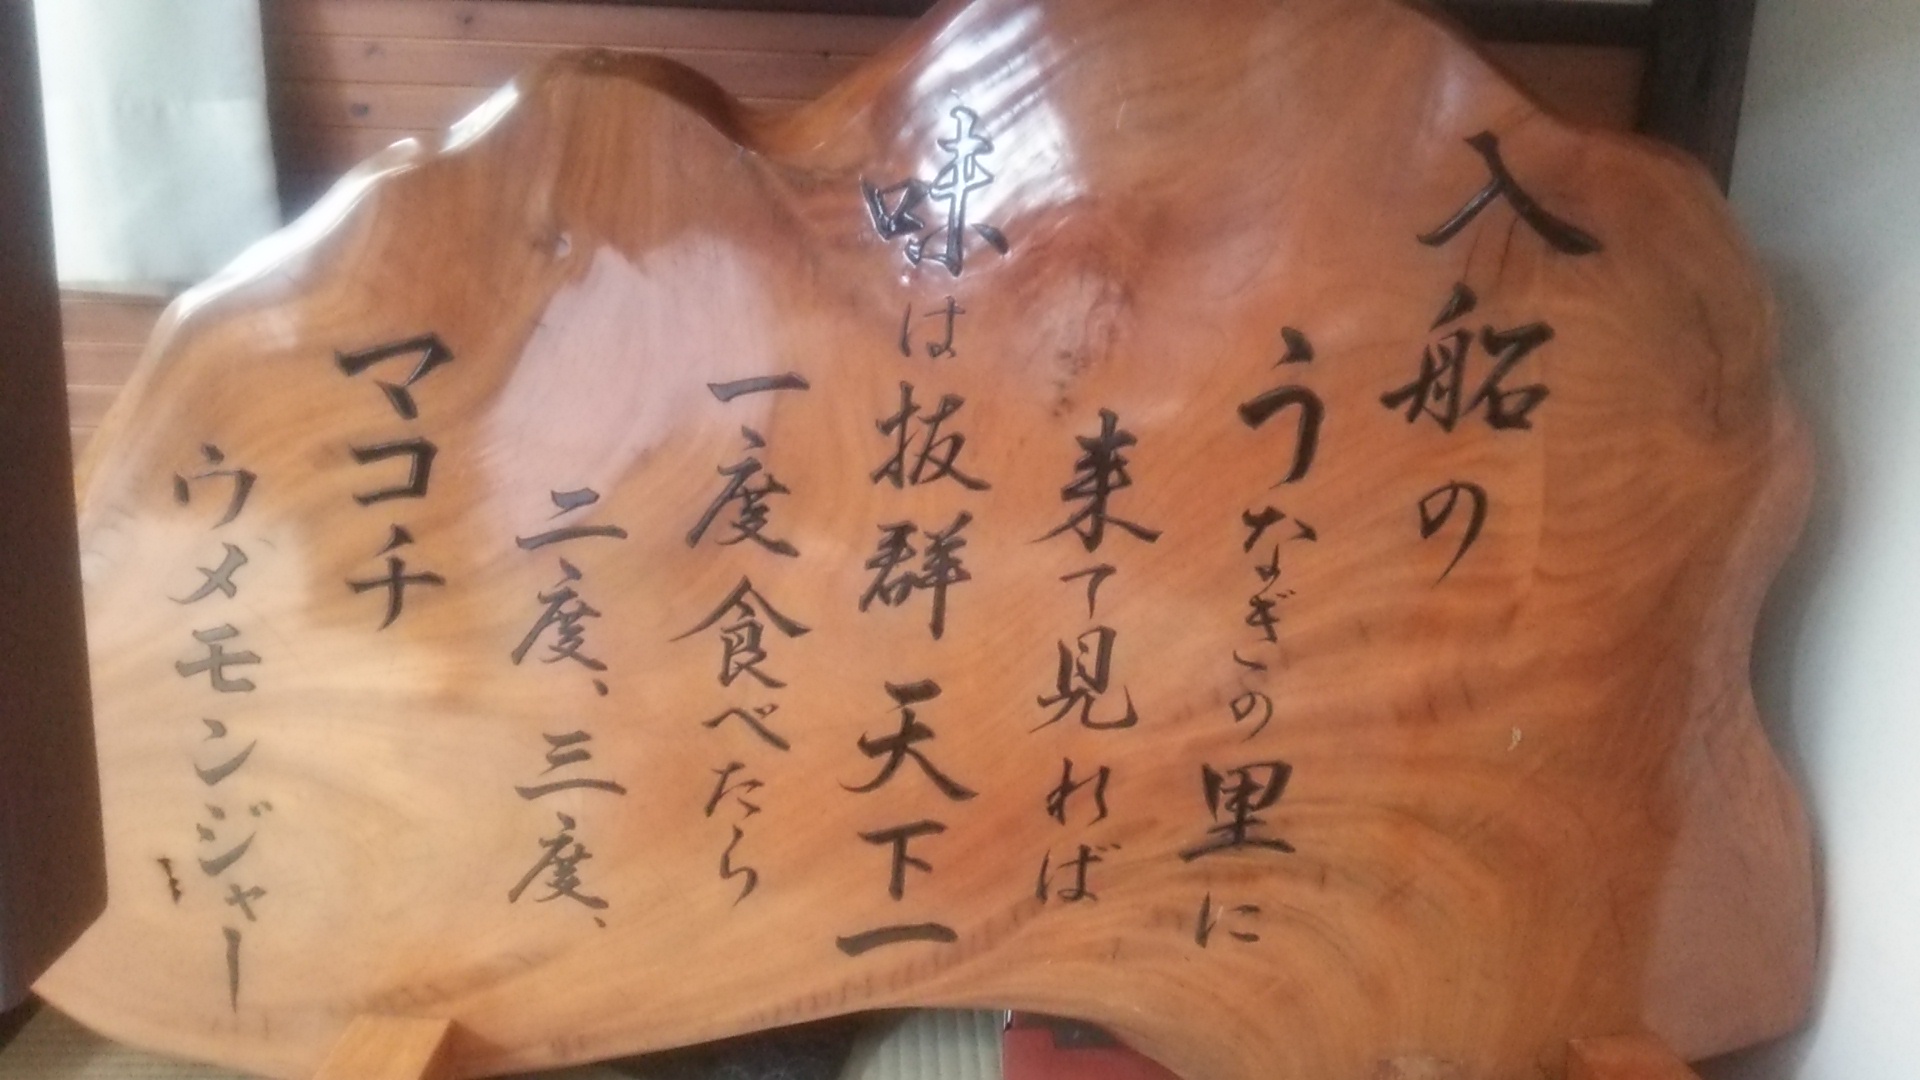 入船の
うなぎの里に
来て見れば
味は抜群天下一
一度食べたら
二度、三度、
マコチ
ウメモンジャー